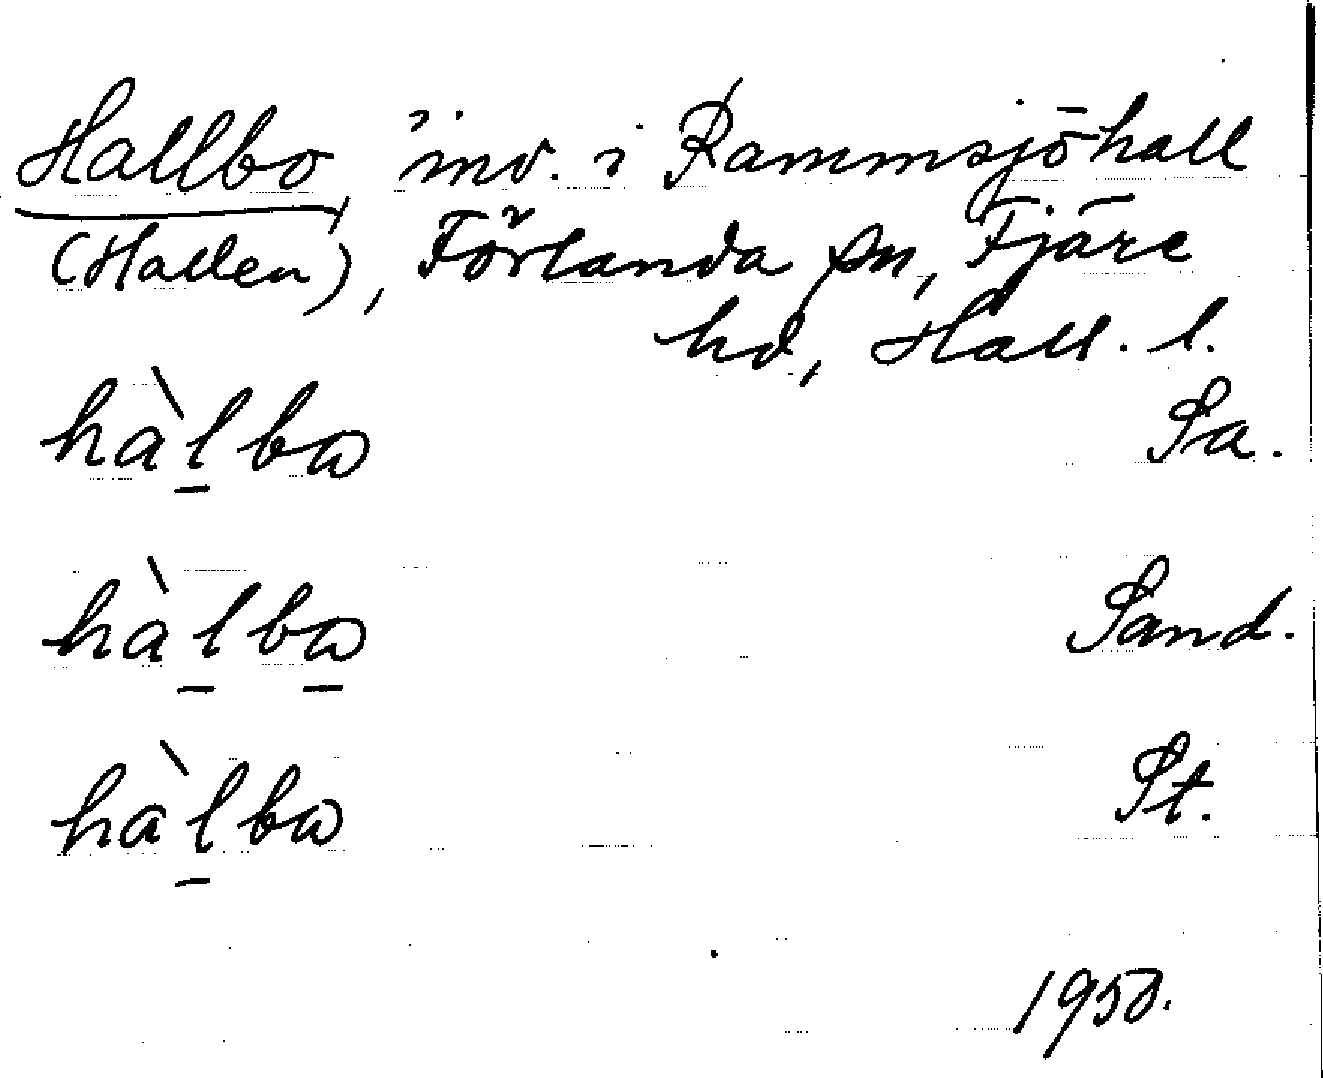 Hallbo, inv. i Rammsjöhall
(Hallen), Förlanda sn, Fjäre
hd, Hall. l.
hàlbω Sa.
hàlbω Sand.
hàlbω St.
1950.